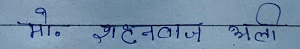 मो० शहनवाज अली